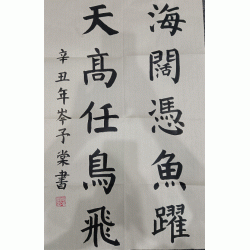 海闊憑魚躍
天高任鳥飛
辛丑年岑予棠書